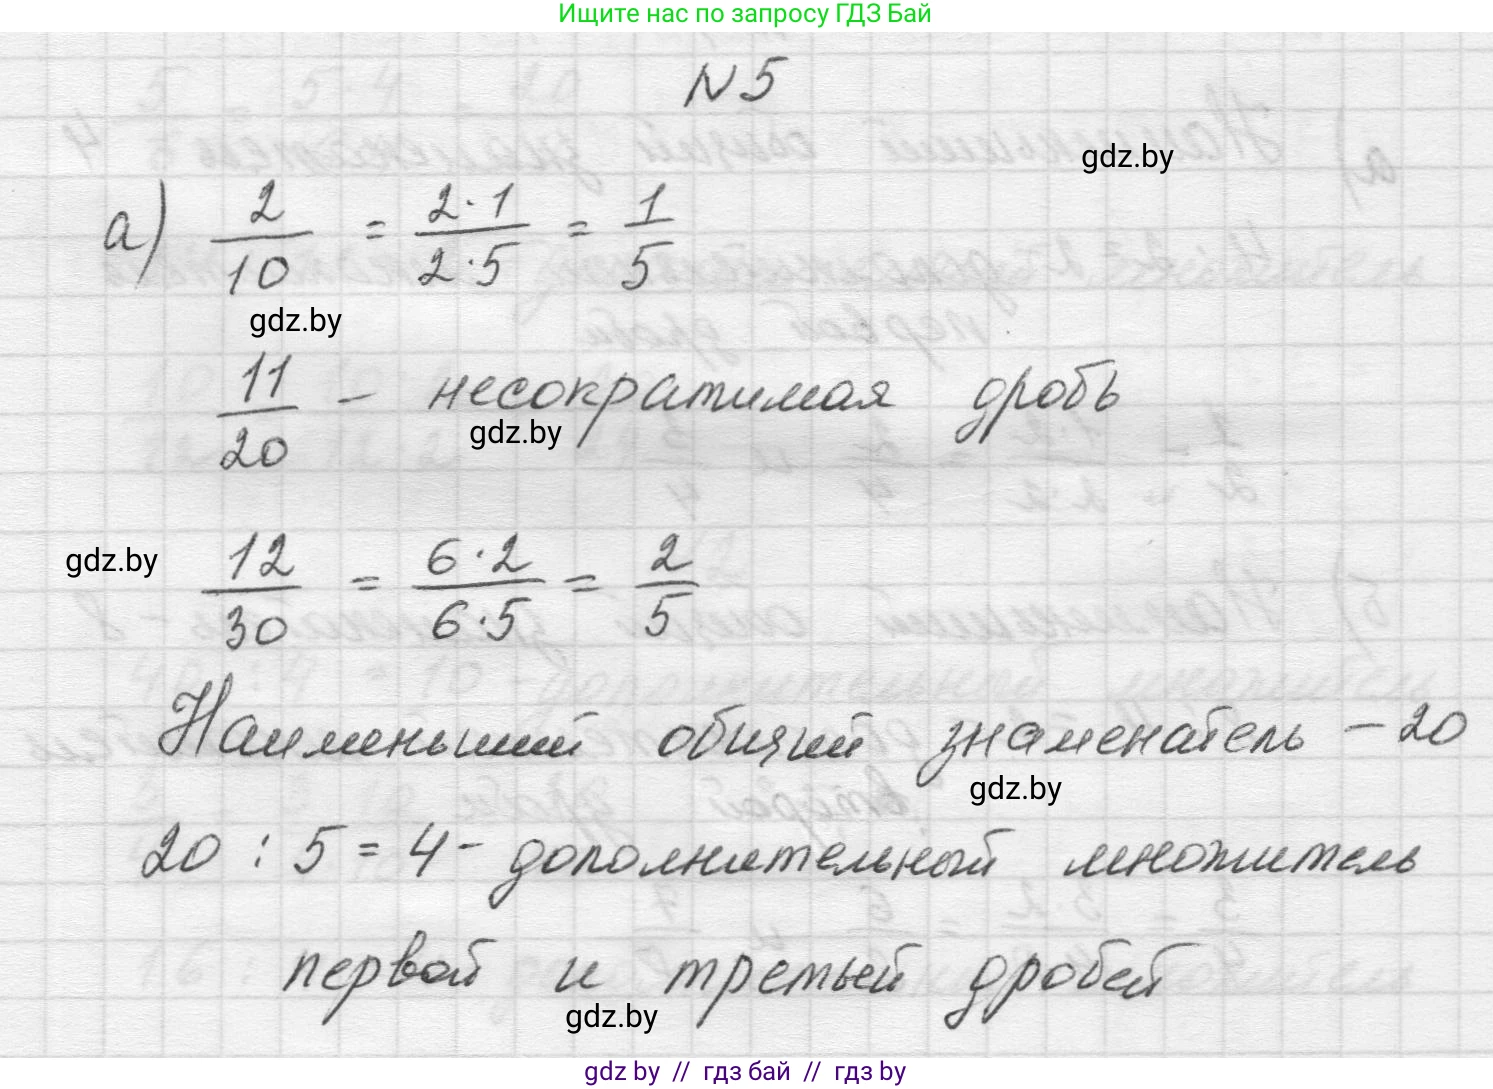 Ищите нас по запросу ГДЗ Бай
N 5
gdz.by
а) 2/10 = 2·1/2·5 = 1/5
gdz.by
11/20 - несократимая дробь
gdz.by
gdz.by
12/30 = 6·2/6·5 = 2/5
Наименьший общий знаменатель - 20
gdz.by
20 : 5 = 4 - дополнительный множитель
первой и третьей дробей
gdz.by
gdz.by // гдз бай // гдз by